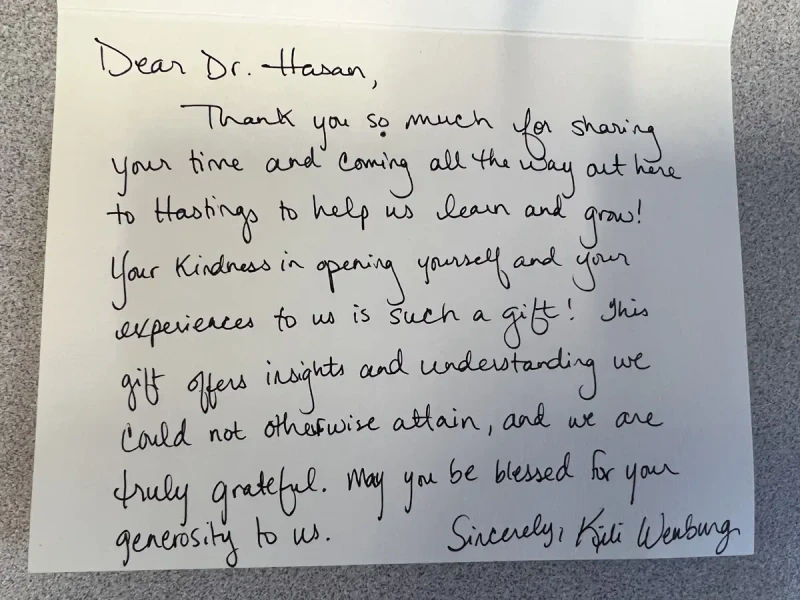 Dear Dr. Hasan,
Thank you so much for sharing
your time and coming all the way out here
to Hastings to help us learn and grow!
Your kindness in opening yourself and your
experiences to us is such a gift! This
gift offers insights and understanding we
could not otherwise attain, and we are
truly grateful. May you be blessed for your
generosity to us.
Sincerely,